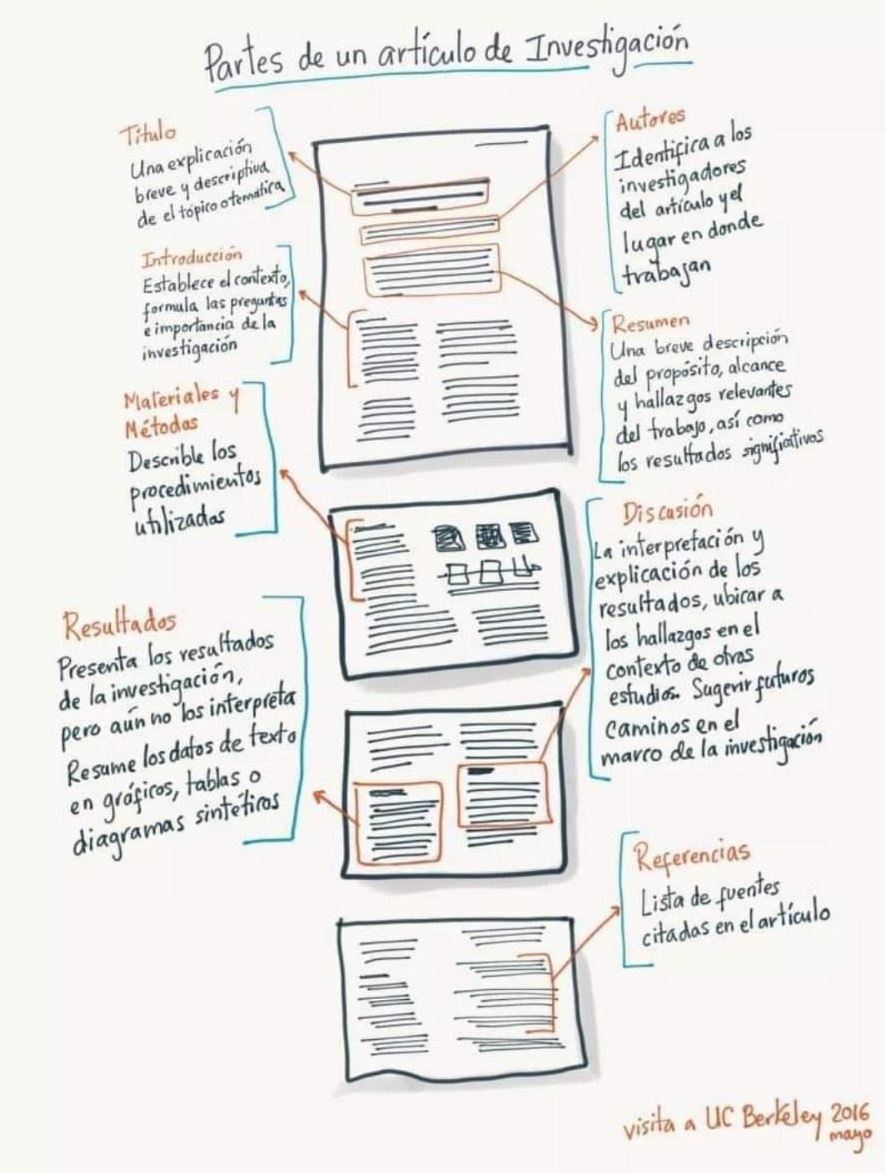 Partes de un artículo de Investigación
Título
Una explicación
breve y descriptiva
de el tópico o temática
Autores
Identifica a los
investigadores
del artículo y el
lugar en donde
trabajan
Introducción
Establece el contexto,
formula las preguntas
e importancia de la
investigación
Resumen
Una breve descripción
del propósito, alcance
y hallazgos relevantes
del trabajo, así como
los resultados significativos
Materiales y
Métodos
Describle los
procedimientos
utilizados
Discusión
La interpretación y
explicación de los
resultados, ubicar a
los hallazgos en el
contexto de otras
estudios. Sugerir futuros
caminos en el
marco de la investigación
Resultados
Presenta los resultados
de la investigación,
pero aún no los interpreta
Resume los datos de texto
en gráficos, tablas o
diagramas sintéticos
Referencias
Lista de fuentes
citadas en el artículo
visita a UC Berkeley 2016
mayo